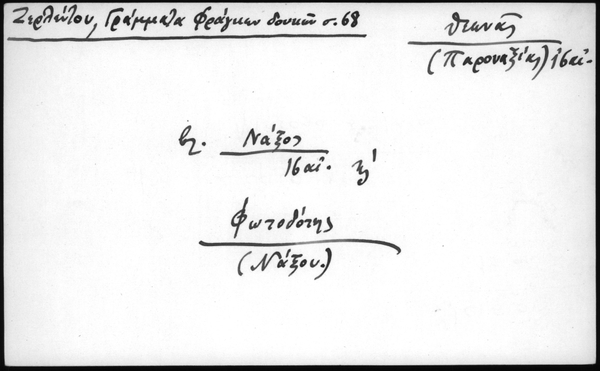 Ζερλέντου, Γράμματα Φράγκων δουκῶν σ. 68
(Παροναξίας) 16 αἰ.
βλ. Νάξος
16 αἰ.
Φωτοδότης
(Νάξου.)